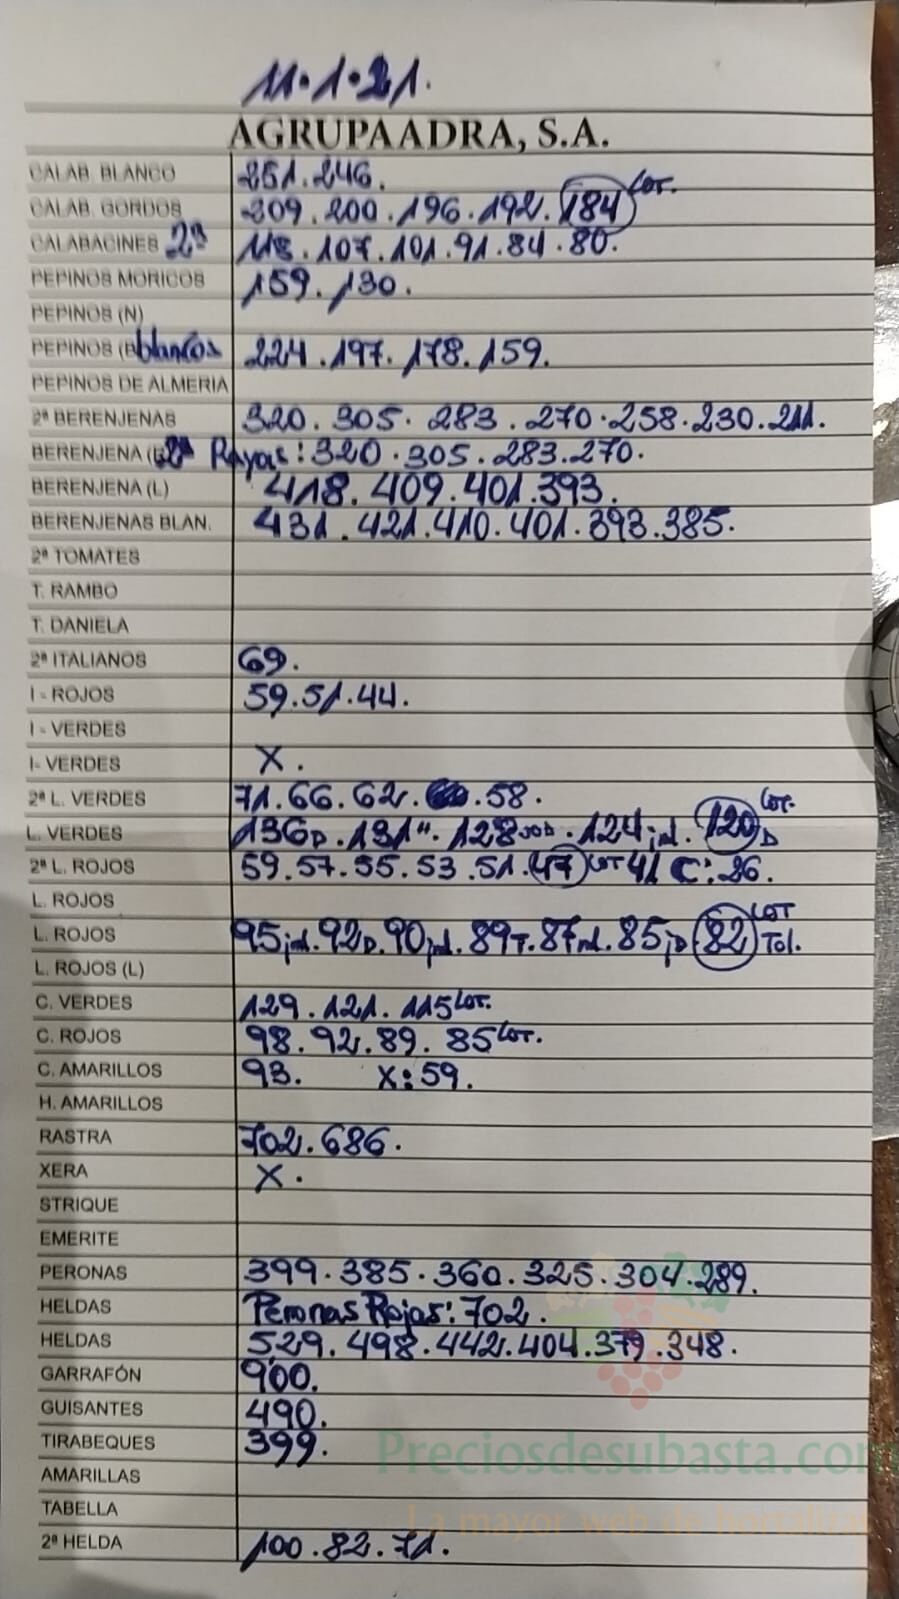 11.1.21.
AGRUPAADRA, S.A.
CALAB. BLANCO 251.246.
CALAB. GORDOS 209.200.196.192.184 LOT.
CALABACINES 2ª 118.107.101.91.84.80.
PEPINOS MORICOS 159.130.
PEPINOS (N)
PEPINOS (B blancos 224.197.178.159.
PEPINOS DE ALMERIA
2ª BERENJENAS 320.305.283.270.258.230.211.
BERENJENA ( 2ª Rayas: 320.305.283.270.
BERENJENA (L) 418.409.401.393.
BERENJENAS BLAN. 431.421.410.401.393.385.
2ª TOMATES
T. RAMBO
T. DANIELA
2ª ITALIANOS 69.
I - ROJOS 59.51.44.
I - VERDES
I- VERDES X.
2ª L. VERDES 71.66.62. .58.
L. VERDES 136D.131".128 .124 .120 D LOT.
2ª L. ROJOS 59.57.55.53.51.47 LOT 41 C:26.
L. ROJOS
L. ROJOS 95 .92D.90 .89T.87 .85 .82 LOT Tol.
L. ROJOS (L)
C. VERDES 129.121.115 LOT.
C. ROJOS 98.92.89.85 LOT.
C. AMARILLOS 93. X:59.
H. AMARILLOS
RASTRA 702.686.
XERA X.
STRIQUE
EMERITE
PERONAS 399.385.360.325.304.289.
HELDAS Peronas Rojas: 702.
HELDAS 529.498.442.404.379.348.
GARRAFÓN 900.
GUISANTES 490.
TIRABEQUES 399.
Preciosdesubasta.com
AMARILLAS
TABELLA
La mayor web de hortalizas
2ª HELDA 100.82.71.